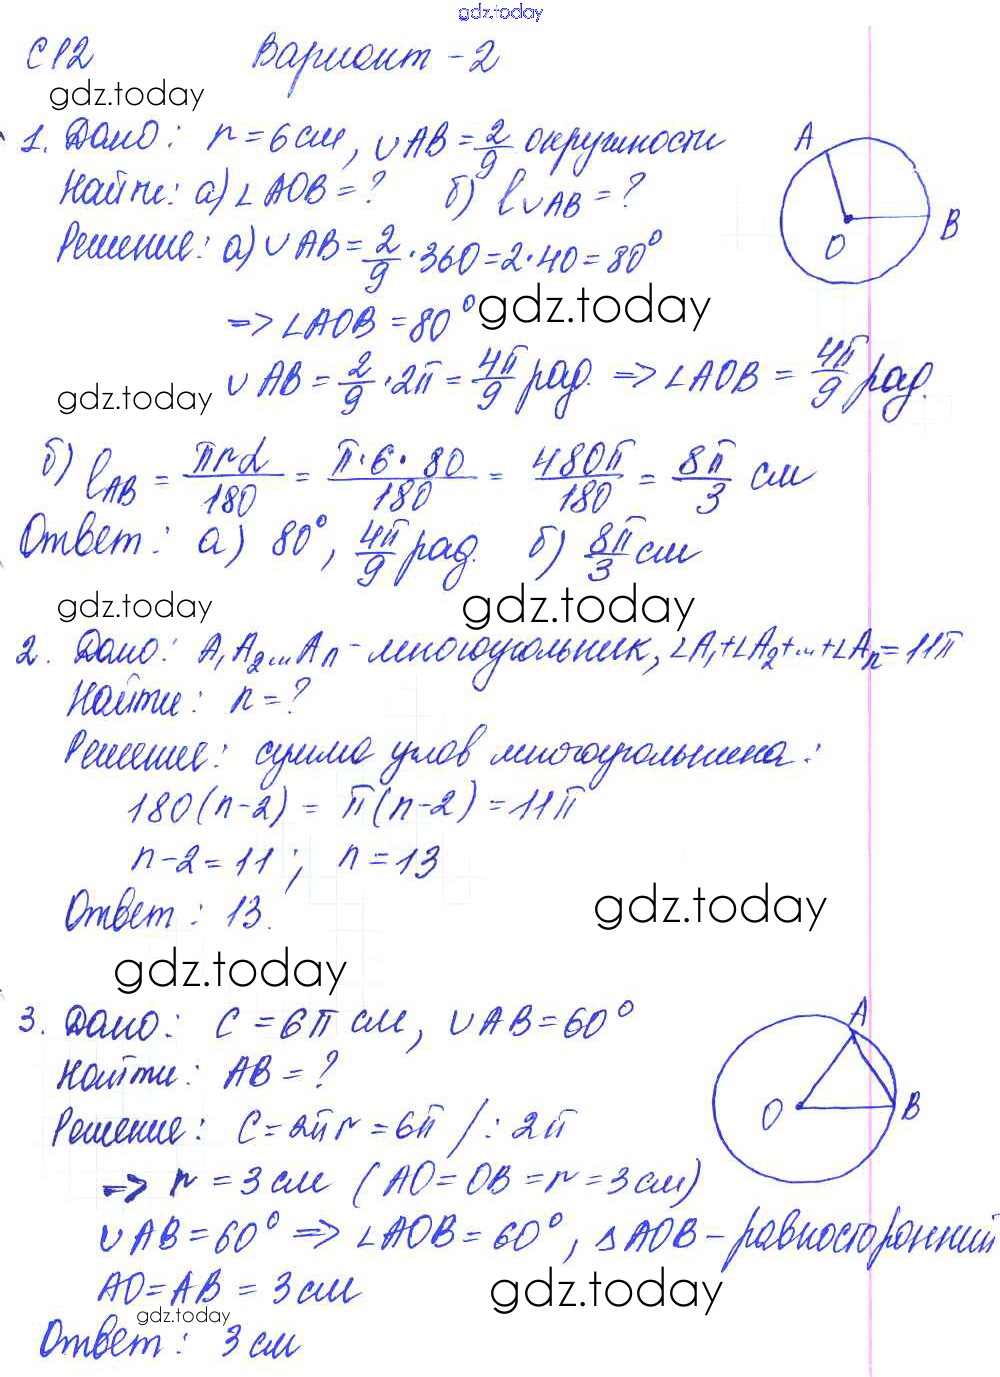 gdz.today
С12 Вариант - 2
gdz.today
1. Дано: r = 6 см, ∪AB = 2/9 окружности
Найти: а) ∠AOB = ? б) l∪AB = ?
Решение: а) ∪AB = 2/9 · 360 = 2 · 40 = 80°
A
B
O
=> ∠AOB = 80°
gdz.today
∪AB = 2/9 · 2π = 4π/9 рад. => ∠AOB = 4π/9 рад.
gdz.today
б) lAB = πrα/180 = π·6·80/180 = 480π/180 = 8π/3 см
Ответ: а) 80°, 4π/9 рад. б) 8π/3 см
gdz.today gdz.today
2. Дано: A₁A₂...Aₙ - многоугольник, ∠A₁+∠A₂+...+∠Aₙ = 11π
Найти: n = ?
Решение: сумма углов многоугольника:
180(n-2) = π(n-2) = 11π
n-2 = 11; n = 13
Ответ: 13.
gdz.today
gdz.today
3. Дано: C = 6π см, ∪AB = 60°
Найти: AB = ?
Решение: C = 2πr = 6π /: 2π
A
O
B
=> r = 3 см (AO = OB = r = 3 см)
∪AB = 60° => ∠AOB = 60°, △AOB - равносторонний
AO = AB = 3 см
gdz.today
gdz.today
Ответ: 3 см